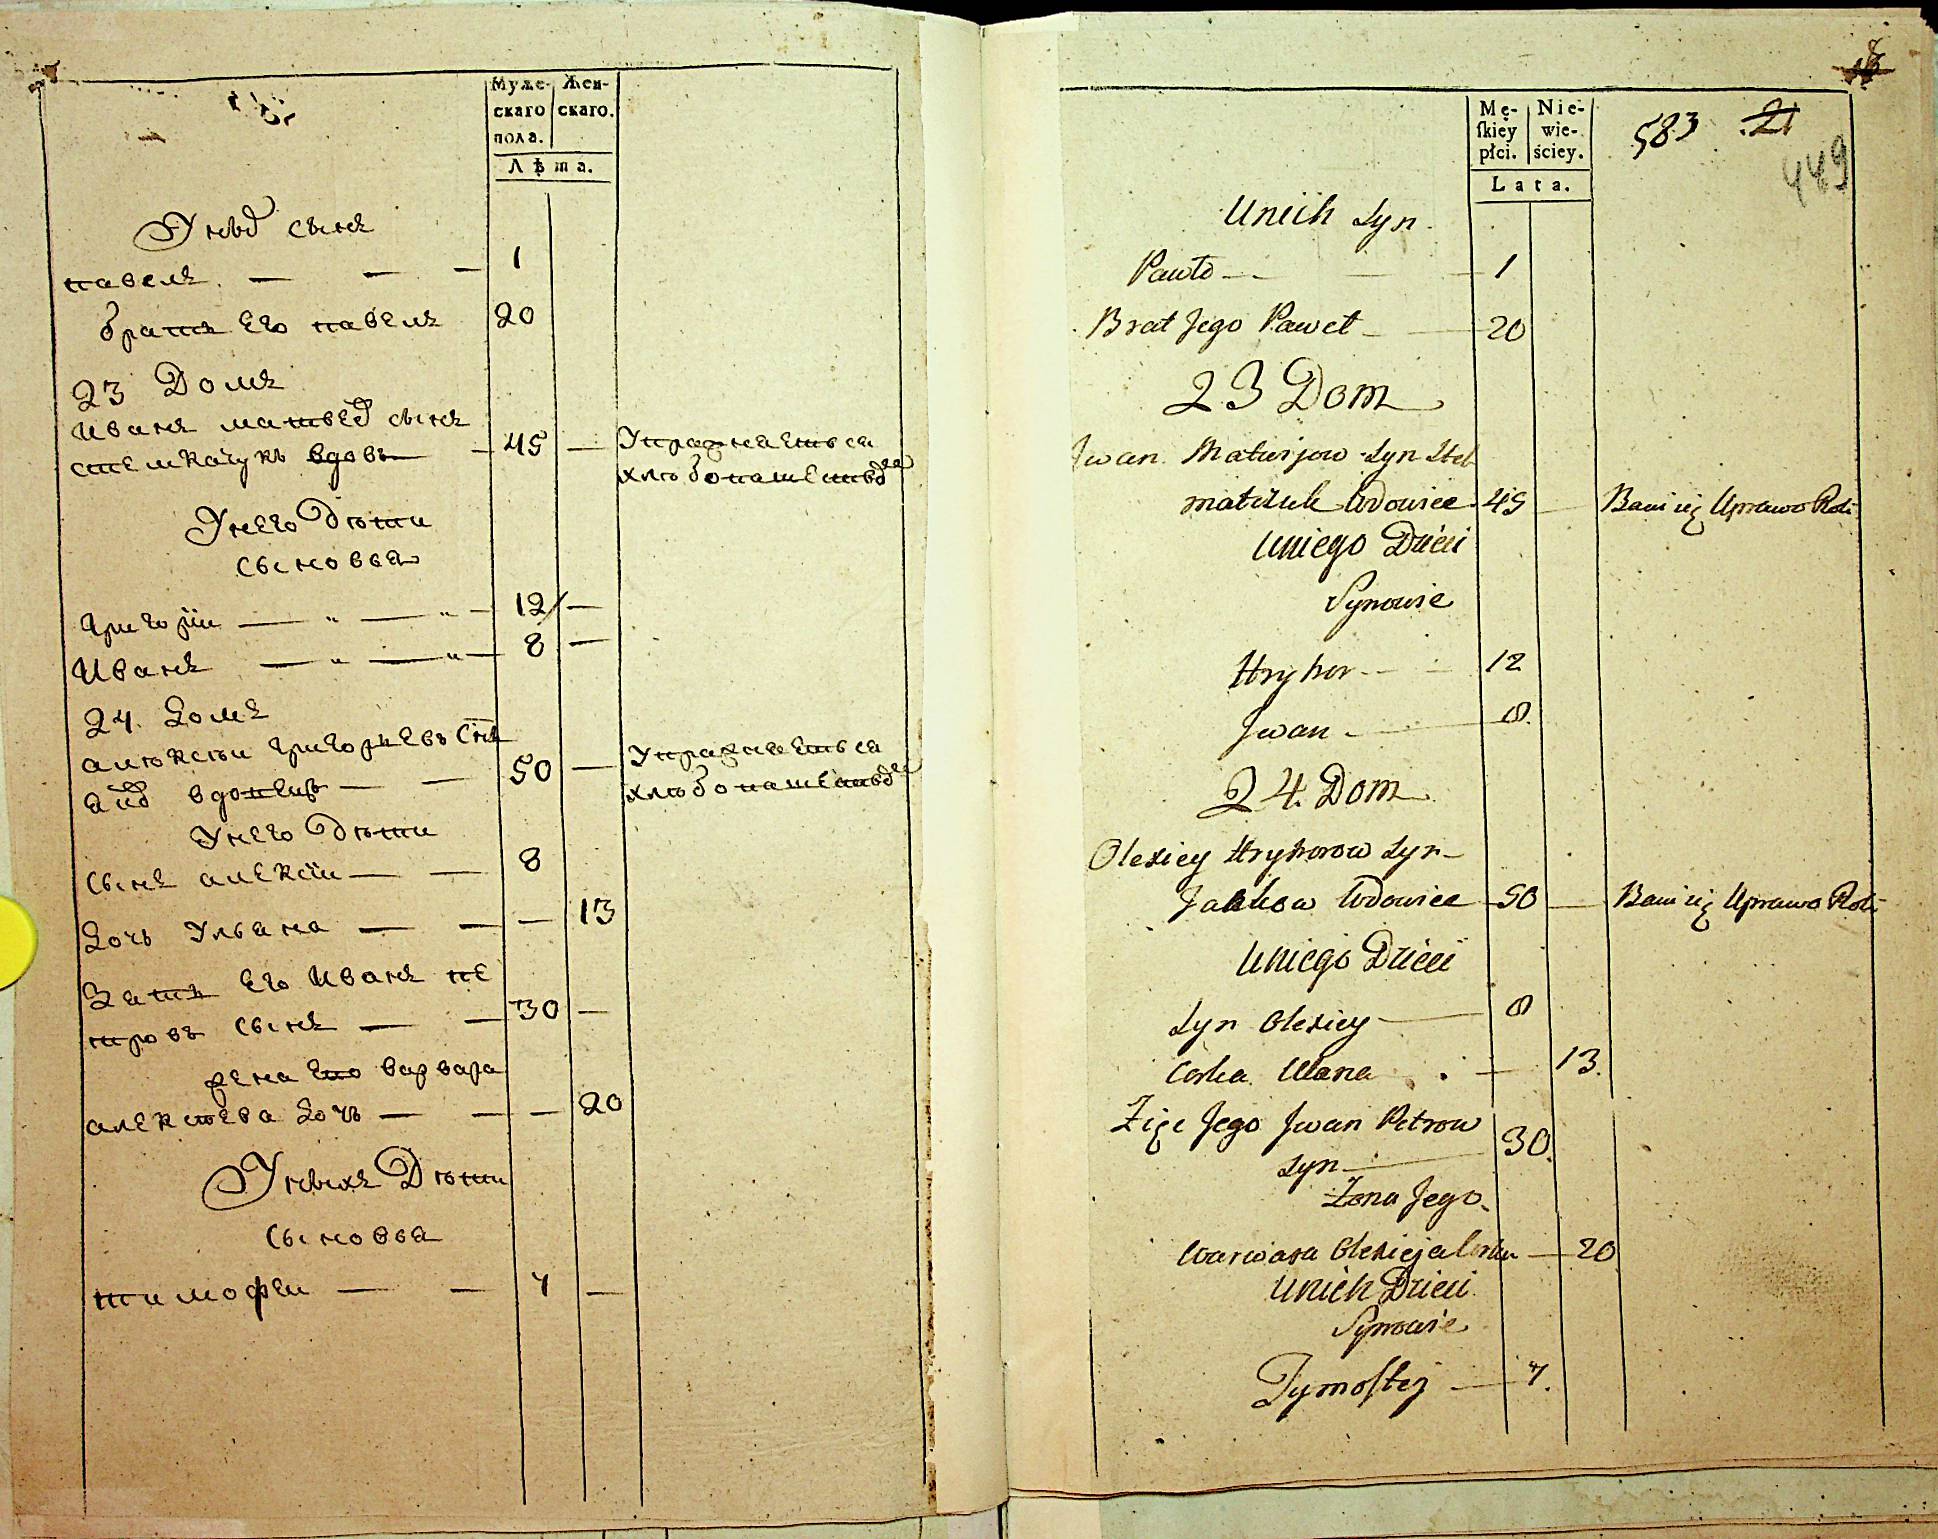 Муже- Жен-
скаго скаго.
пола.
Лѣта.
У нихъ сынъ
павелъ — — — 1
братъ Его павелъ 20
23 Домъ
Иванъ матвеевъ сынъ
стемкачукъ вдовъ — 45 — Упражняетъся
хлѣбопашествомъ
У него Дѣти
сыновья
Григорїи — " — " — 12 —
Иванъ — " — " — 8 —
24. Домъ
алѣксѣи григорьевъ Снъ
вдовецъ — — 50 — Упражняетъся
хлѣбопашествомъ
У него Дѣти
сынъ алексїи — — 8
Дочь Ульяна — — — 13
Зять Его Иванъ пе
тровъ сынъ — — 30 —
жена Его варвара
алексѣева Дочь — — — 20
У нихъ Дѣти
сыновья
тимофеи — — 7 —
Mę- Nie-
skiey wie-
płci. ściey.
Lata.
583 21
449
Unich Syn
Pawło — — 1
Brat Jego Paweł — 20
23 Dom
Jwan Matwijow Syn Stet
matczuk Wdowiec 45 — Bawi się Uprawo Roli
Uniego Dzieci
Synowie
Hryhor — 12
Jwan — 8.
24. Dom
Olexiey Hryhorow Syn —
Jackow Wdowiec — 50 — Bawi się Uprawo Roli
Uniego Dzieci
Syn Olexiey — 8
Corka Ulana — 13.
Zięc Jego Jwan Petrow
Syn — 30.
Zona Jego
Warwara Olexieja Corka — 20
Unich Dzieci
Synowie
Tymoftej — 7.